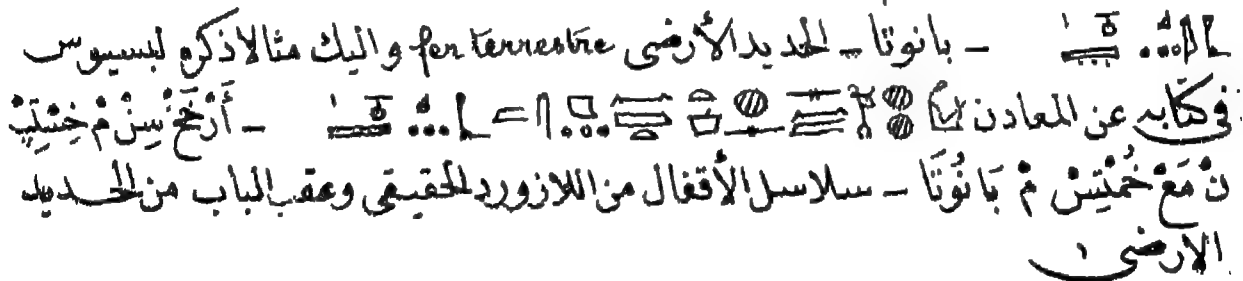 – بانوتا – الحديد الأرضى fer terrestre واليك مثالا ذكره لبسيوس
فى كتابه عن المعادن – أَرْخَخْ سِنْ مْ خِسْتِبْ
نْ مَعْ خُمْتِسْ مْ بَانُوتَا – سلاسل الأقفال من اللازورد الحقيقى وعقب الباب من الحديد
الارضى ١